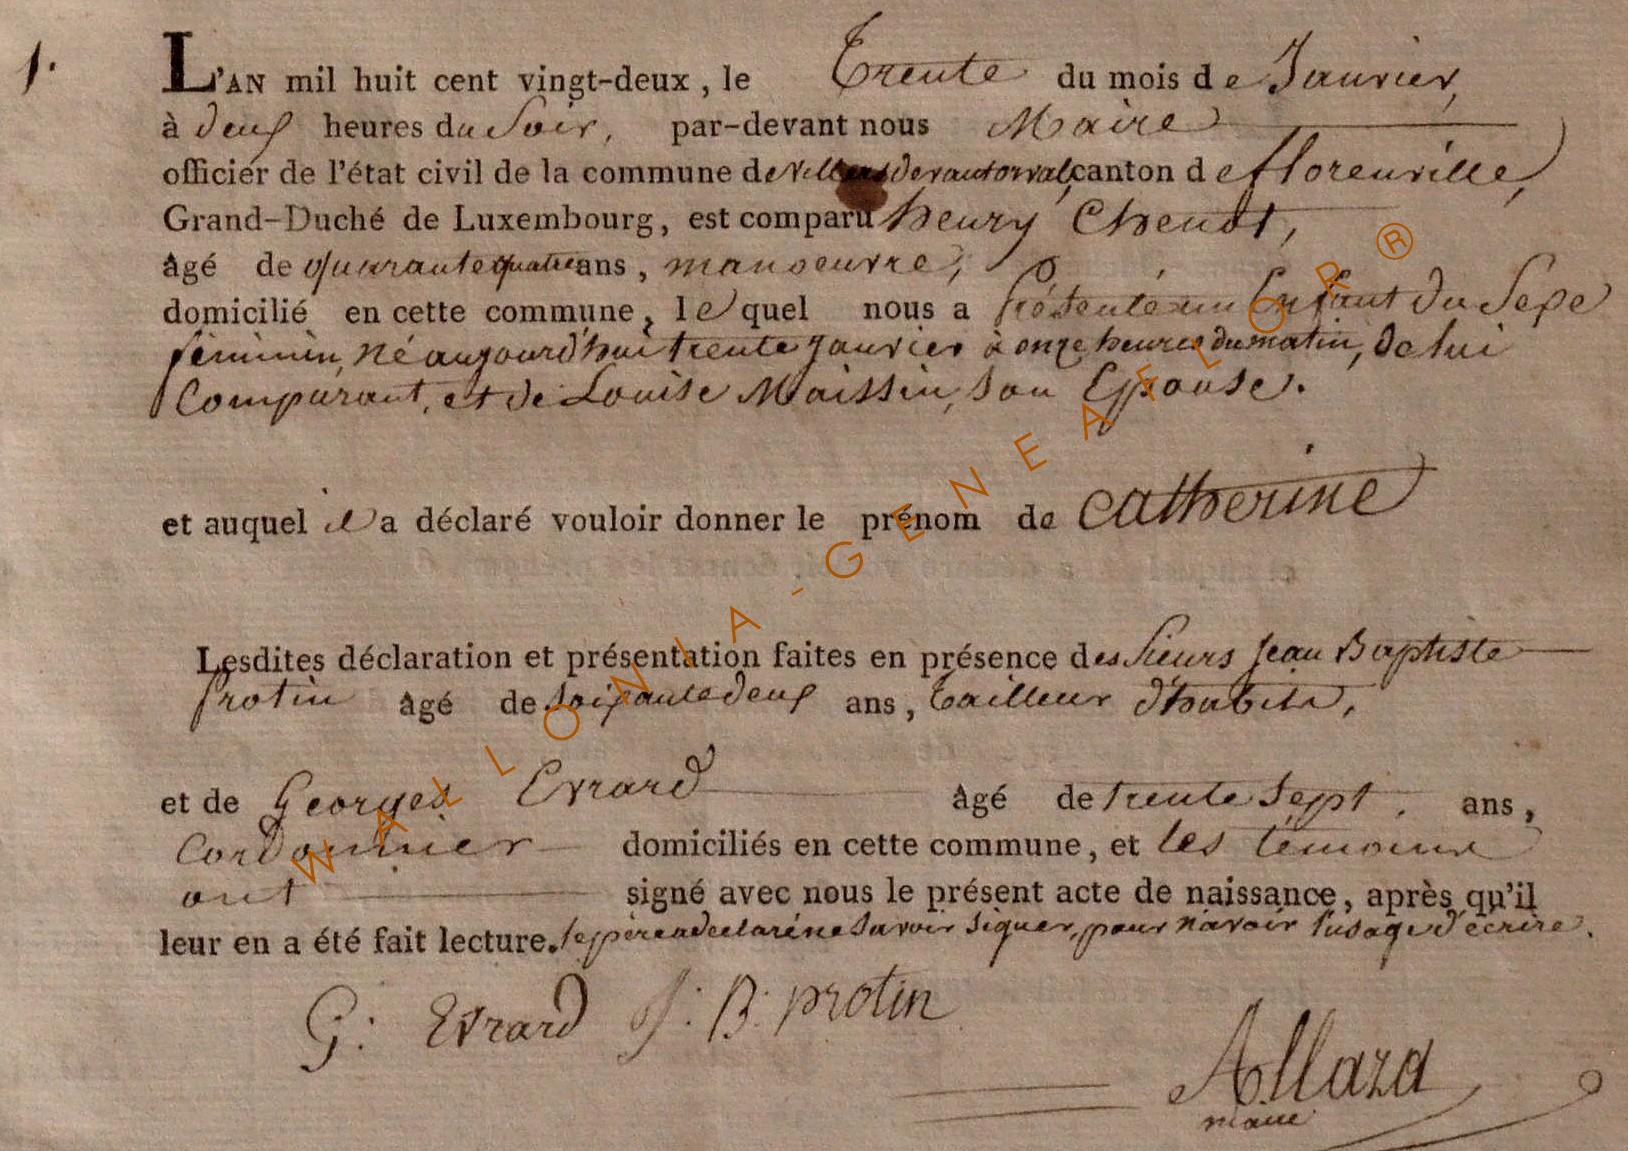 1.
L'AN mil huit cent vingt-deux, le Trente du mois de Janvier,
à deux heures du Soir, par-devant nous Maire
officier de l'état civil de la commune de villers devant orval, canton de florenville,
Grand-Duché de Luxembourg, est comparu henry Chenot,
âgé de quarante quatre ans, manoeuvre,
domicilié en cette commune, lequel nous a présenté un Enfant du Sexe
féminin, né aujourd'hui trente janvier à onze heures du matin, de lui
Comparant, et de Louise Maissin, son Epouse.
et auquel il a déclaré vouloir donner le prénom de Catherine
Lesdites déclaration et présentation faites en présence des Sieurs Jean Baptiste
protin âgé de soixante deux ans, tailleur d'habits,
et de Georges Evrard âgé de trente sept ans,
Cordonnier domiciliés en cette commune, et les témoins
ont signé avec nous le présent acte de naissance, après qu'il
leur en a été fait lecture. le père a declaré ne savoir signer, pour n'avoir l'usage d'écrire.
G: Evrard J: B: protin
Allard
maire
WALLONIA-GENEAFLOR ®